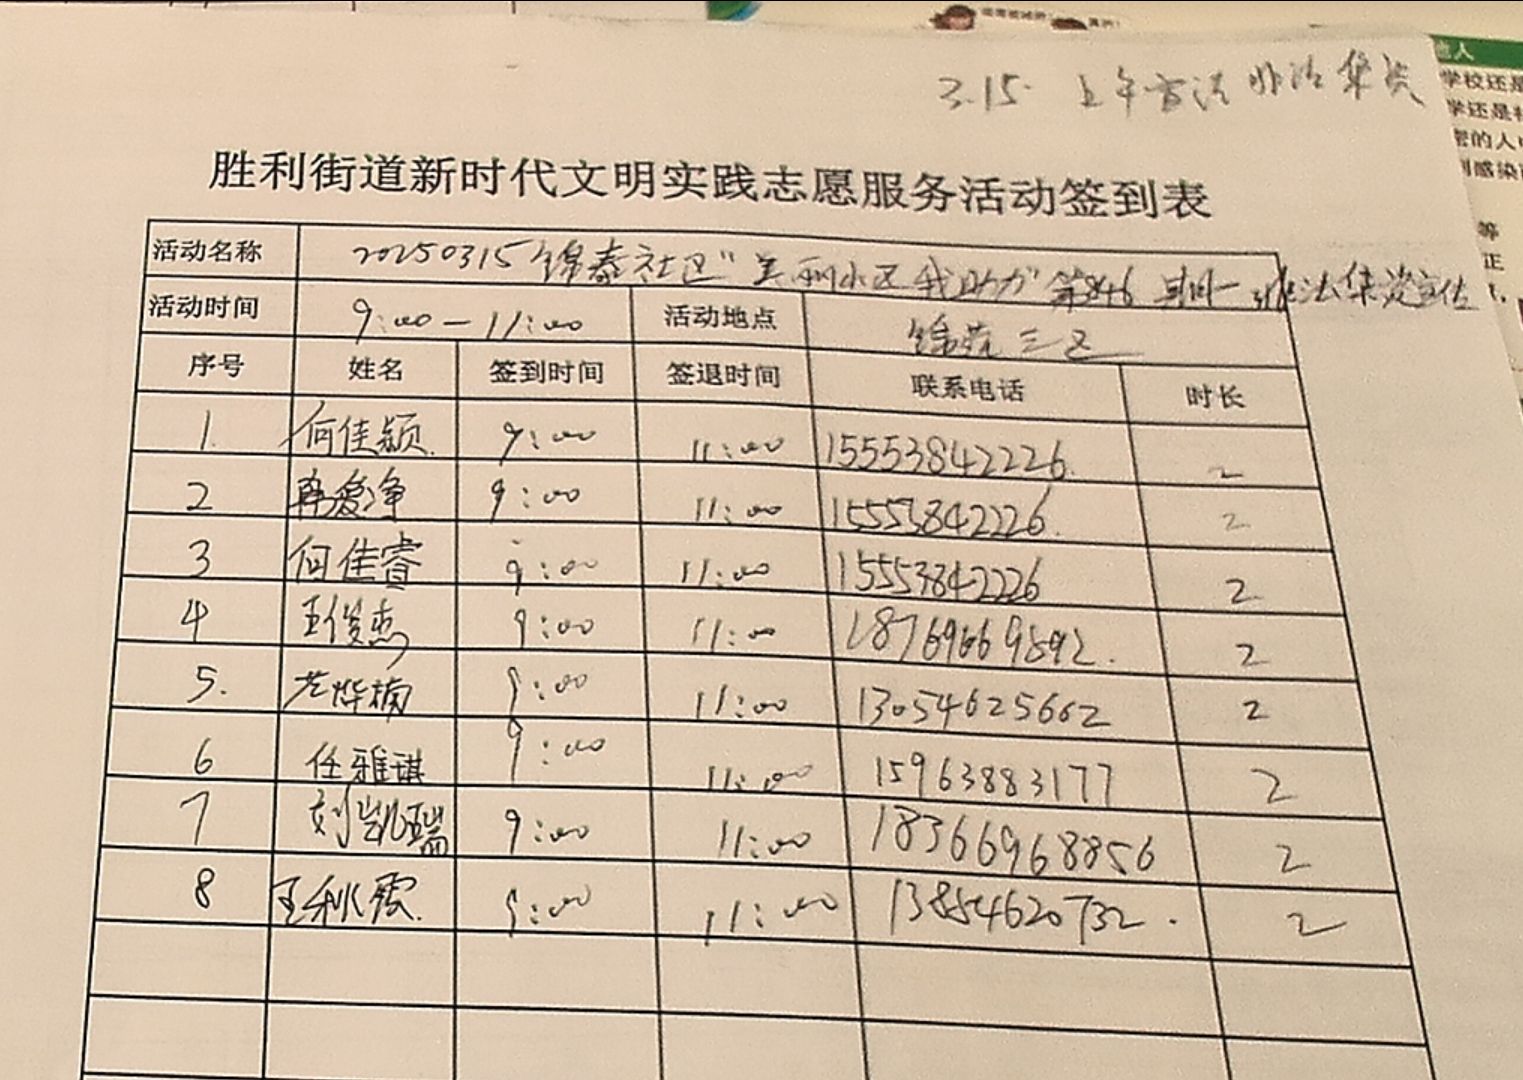 3.15. 上午 非法集资
胜利街道新时代文明实践志愿服务活动签到表
活动名称 20250315锦泰社区"美丽小区 我助力"第 期—非法集资宣传
活动时间 9:00—11:00 活动地点 锦苑三区
序号 姓名 签到时间 签退时间 联系电话 时长
1. 何佳颖. 9:00 11:00 15553842226. 2
2 爱净 9:00 11:00 15553842226. 2
3 何佳睿 9:00 11:00 15553842226 2
4 王俊杰 9:00 11:00 18769669892. 2
5. 烨楠 9:00 11:00 13054625662 2
6 任雅琪 9:00 11:00 15963883177 2
7 刘凯瑞 9:00 11:00 18366968856 2
8 王秋霞. 9:00 11:00 13854620732. 2
地人
学校还是
学还是
密的人
感染
等
正